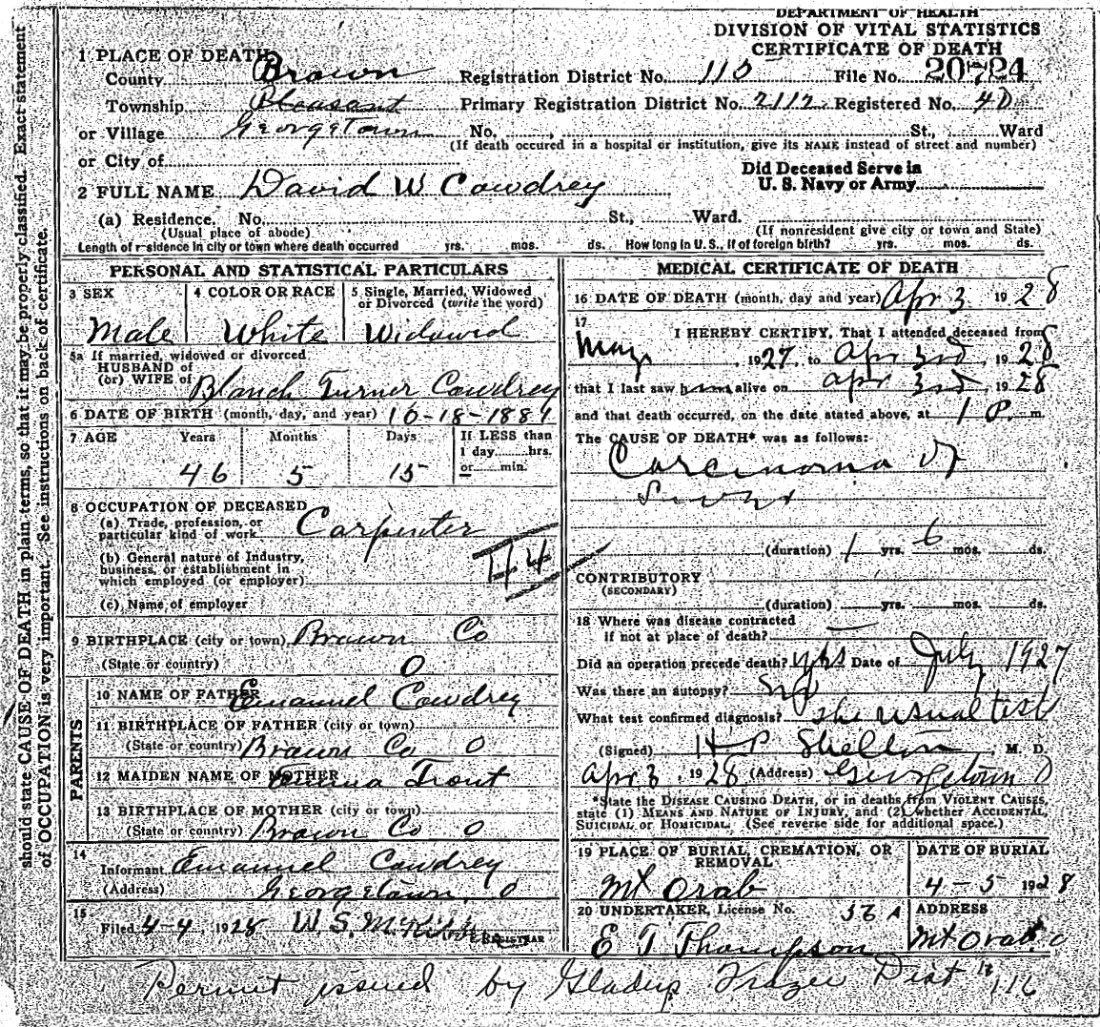 DEPARTMENT OF HEALTH
DIVISION OF VITAL STATISTICS
CERTIFICATE OF DEATH
1 PLACE OF DEATH
County Brown Registration District No. 115 File No. 20724
Township Pleasant Primary Registration District No. 2112 Registered No. 40
or Village Georgetown No. St., Ward
(If death occured in a hospital or institution, give its NAME instead of street and number)
or City of
Did Deceased Serve in
U. S. Navy or Army
2 FULL NAME David W Cowdrey
(a) Residence. No. St., Ward.
(Usual place of abode) (If nonresident give city or town and State)
Length of residence in city or town where death occurred yrs. mos. ds. How long in U.S., if of foreign birth? yrs. mos. ds.
PERSONAL AND STATISTICAL PARTICULARS
3 SEX 4 COLOR OR RACE 5 Single, Married, Widowed
or Divorced (write the word)
Male White Widowed
5a If married, widowed or divorced
HUSBAND of
(or) WIFE of Blanch Turner Cowdrey
6 DATE OF BIRTH (month, day, and year) 10-18-1881
7 AGE Years Months Days If LESS than
1 day hrs.
or min.
46 5 15
8 OCCUPATION OF DECEASED
(a) Trade, profession, or
particular kind of work Carpenter
(b) General nature of Industry,
business, or establishment in
which employed (or employer)
44
(c) Name of employer
9 BIRTHPLACE (city or town) Brown Co
(State or country) O
PARENTS
10 NAME OF FATHER Emanuel Cowdrey
11 BIRTHPLACE OF FATHER (city or town)
(State or country) Brown Co O
12 MAIDEN NAME OF MOTHER Emma Trout
13 BIRTHPLACE OF MOTHER (city or town)
(State or country) Brown Co O
14
Informant Emanuel Cowdrey
(Address) Georgetown, O
15
Filed 4-4, 1928 W. S. REGISTRAR
MEDICAL CERTIFICATE OF DEATH
16 DATE OF DEATH (month, day and year) Apr 3 1928
17
I HEREBY CERTIFY, That I attended deceased from
May, 1927, to Apr 3rd, 1928
that I last saw him alive on Apr 3rd, 1928
and that death occurred, on the date stated above, at 1 P. m.
The CAUSE OF DEATH* was as follows:
Carcinoma of
(duration) 1 yrs. 6 mos. ds.
CONTRIBUTORY
(SECONDARY)
(duration) yrs. mos. ds.
18 Where was disease contracted
if not at place of death?
Did an operation precede death? yes Date of July 1927
Was there an autopsy? No
What test confirmed diagnosis? the usual test
(Signed) , M. D.
Apr 3, 1928 (Address) Georgetown O
*State the DISEASE CAUSING DEATH, or in deaths from VIOLENT CAUSES,
state (1) MEANS AND NATURE OF INJURY, and (2) whether ACCIDENTAL,
SUICIDAL or HOMICIDAL. (See reverse side for additional space.)
19 PLACE OF BURIAL, CREMATION, OR
REMOVAL
DATE OF BURIAL
Mt Orab 4-5 1928
20 UNDERTAKER, License No. 56 A ADDRESS
E T Thompson Mt Orab O
Permit issued by Gladys Frazee Dist 116
should state CAUSE OF DEATH in plain terms, so that it may be properly classified. Exact statement
of OCCUPATION is very important. See instructions on back of certificate.